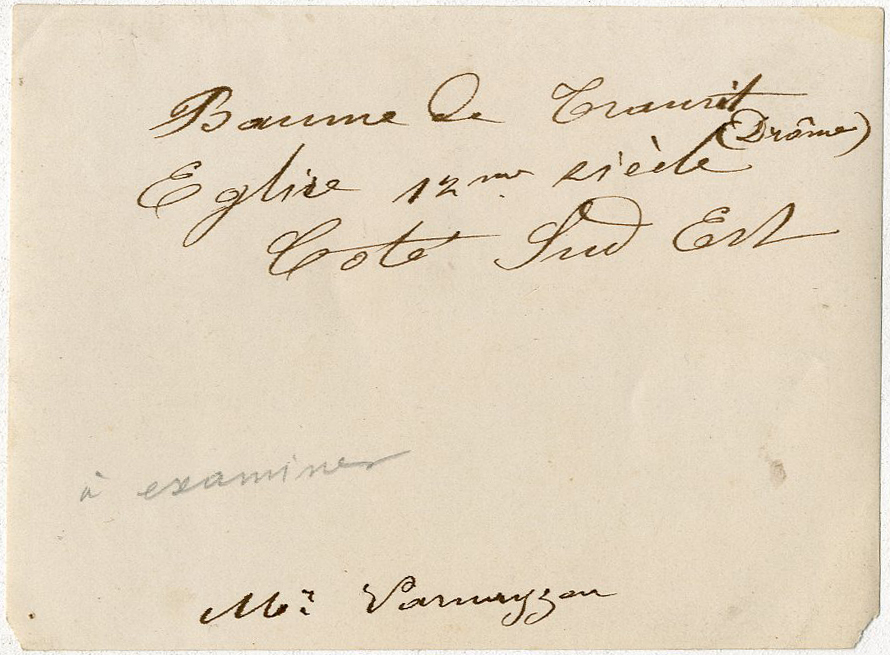 Baume de Transit
(Drôme)
Eglise 12me siècle
Coté Sud Est
à examiner
Mr